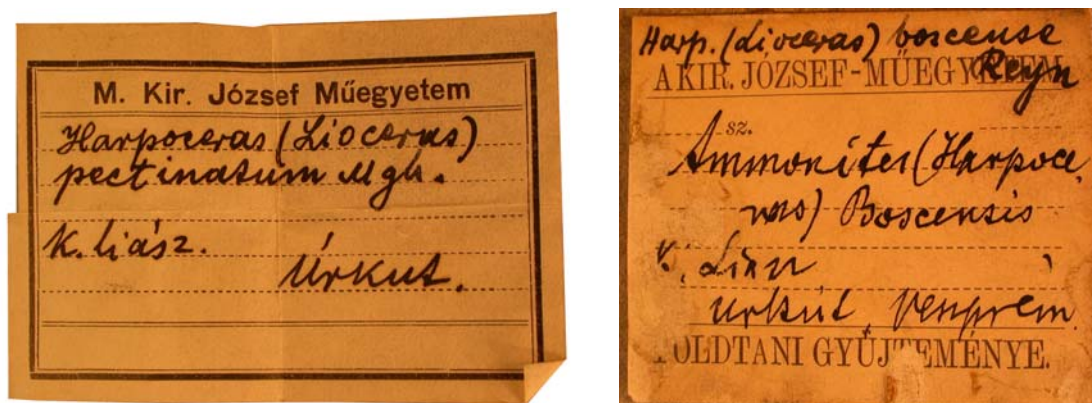 M. Kir. József Műegyetem
Harpoceras (Lioceras)
pectinatum Mgh.
K. liász.
Úrkut.
Harp. (Lioceras) boscense
Reyn
A KIR. JÓZSEF-MŰEGYETEM
sz.
Ammonites (Harpoce
ras) Boscensis
K. Liász
Urkút, Veszprém
FÖLDTANI GYŰJTEMÉNYE.